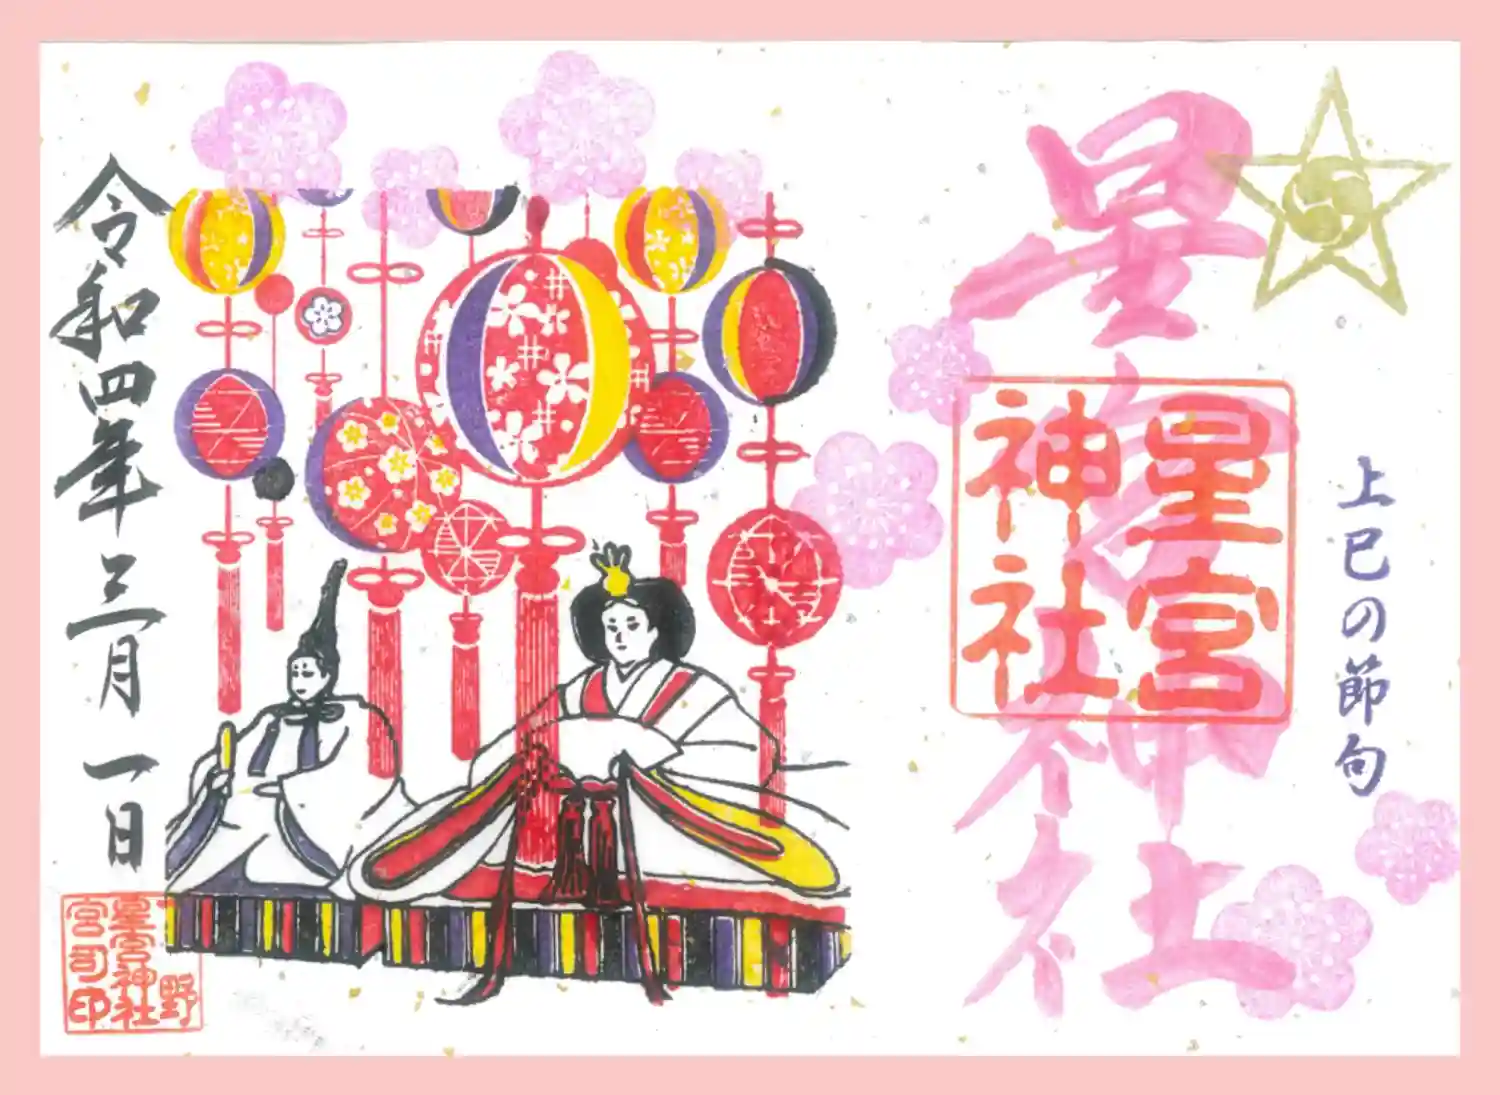 上巳の節句
星宮神社
星宮神社
令和四年三月一日
野
星宮神社
宮司印